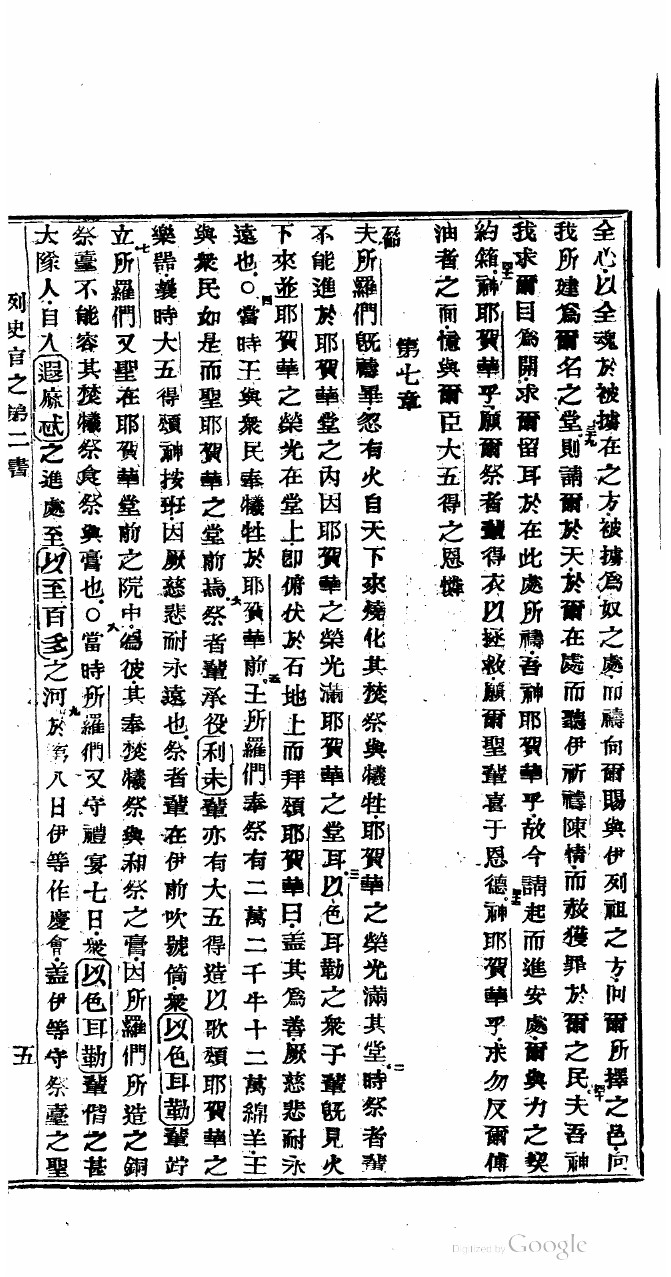 全心以全魂於被擄在之方被擄爲奴之處而禱向爾賜與伊列祖之方向爾所擇之邑向
我所建爲爾名之堂則請爾於天於爾在處而聽伊祈禱陳情而赦獲罪於爾之民夫吾神
我求爾目爲開求爾留耳於在此處所禱吾神耶賀華乎故今請起而進安處爾與力之契
約箱神耶賀華乎願爾祭者輩得衣以拯救願爾聖輩喜于恩德神耶賀華乎求勿反爾傅
油者之面憶與爾臣大五得之恩憐
第七章
夫所羅們既禱畢忽有火自天下來燒化其焚祭與犧牲耶賀華之榮光滿其堂時祭者輩
不能進於耶賀華堂之內因耶賀華之榮光滿耶賀華之堂耳以色耳勒之衆子輩既見火
下來並耶賀華之榮光在堂上卽俯伏於石地上而拜頌耶賀華曰蓋其爲善厥慈悲耐永
遠也○當時王與衆民奉犧牲於耶賀華前王所羅們奉祭有二萬二千牛十二萬綿羊王
與衆民如是而聖耶賀華之堂前焉祭者輩承役利未輩亦有大五得造以歌頌耶賀華之
樂器曩時大五得頌神按班因厥慈悲耐永遠也祭者輩在伊前吹號筒衆以色耳勒輩竚
立所羅們又聖在耶賀華堂前之院中爲彼其奉焚犧祭與和祭之膏因所羅們所造之銅
祭臺不能容其焚犧祭食祭與膏也○當時所羅們又守禮宴七日衆以色耳勒輩偕之甚
大隊人自入遐麻忒之進處至以至百多之河於第八日伊等作慶會蓋伊等守祭臺之聖
列史官之第二書
五
Digitized by Google